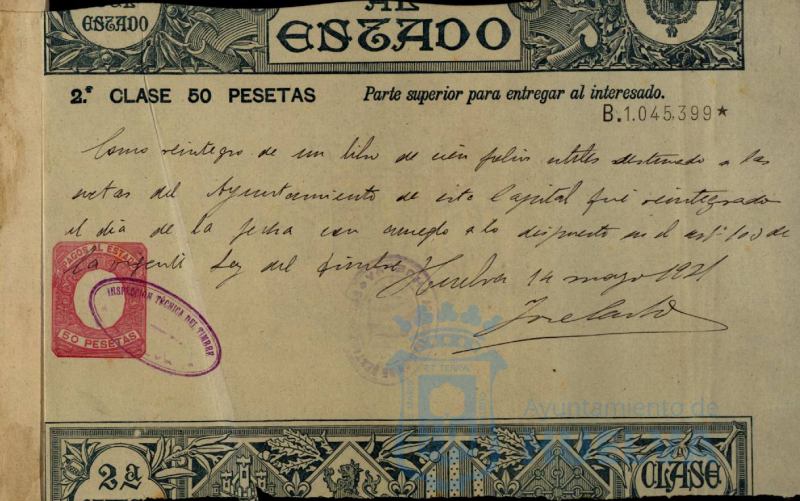 ESTADO
AL
ESTADO
2.ª CLASE 50 PESETAS
Parte superior para entregar al interesado.
B.1.045,399★
Como reintegro de un libro de cien folios utiles destinado a las
actas del Ayuntamiento de esta Capital fué reintegrado
el dia de la fecha con arreglo a lo dispuesto en el artº 103 de
la vigente Ley del timbre Huelva 12 mayo 1921
PAGOS AL ESTADO
50 PESETAS
INSPECCION TÉCNICA DEL TIMBRE
Ayuntamiento de
2ª
CLASE